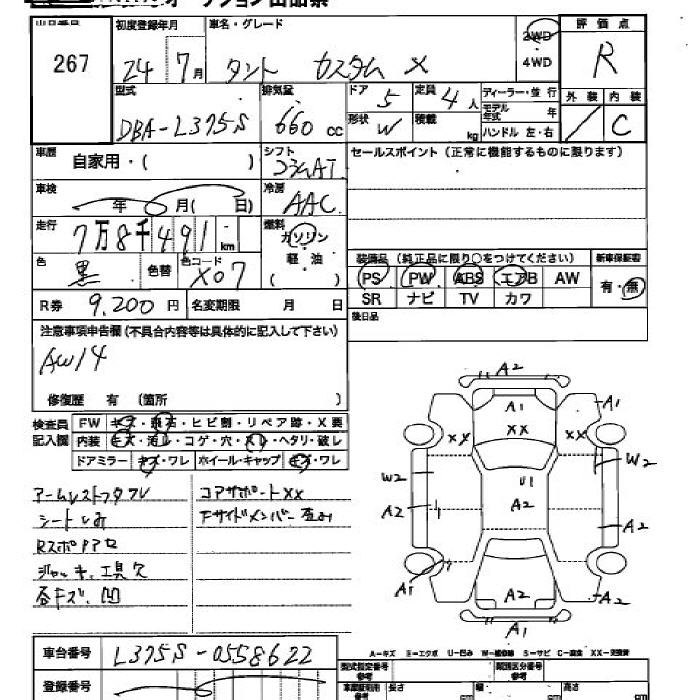 オークション出品票
出品番号 267
初度登録年月 24年7月
車名・グレード タント カスタム X
2WD
4WD
評価点 R
型式 DBA-L375S
排気量 660 cc
ドア 5
定員 4人
形状 W
積載 kg
ディーラー・並行
モデル年式 年
ハンドル 左・右
外装 /
内装 C
車歴 自家用・( )
シフト コラムAT
セールスポイント(正常に機能するものに限ります)
車検 年 月( 日)
冷房 AAC
走行 7万8千491km
燃料 ガソリン
軽・油
色 黒
色替
色コード X07
装備品(純正品に限り○をつけてください)
新車保証書
PS PW ABS エアB AW
SR ナビ TV カワ
有・無
R券 9,200円
名変期限 月 日
後日品
注意事項申告欄(不具合内容等は具体的に記入して下さい)
AW14
修復歴 有(箇所 )
検査員記入欄
FW キズ・飛石・ヒビ割・リペア跡・X要
内装 キズ・汚レ・コゲ・穴・スレ・ヘタリ・破レ
ドアミラー キズ・ワレ ホイール・キャップ キズ・ワレ
アームレストフタワレ
シートしみ
Rスポ
ジャッキ、工具欠
各キズ、凹
コアサポートXX
Fサイドメンバー歪み
A2
A1
XX
A1
XX
XX
W2
U1
W2
A2
A2
A2
A1
A2
A2
A1
A-キズ E-エクボ U-凹み W-補修跡 S-サビ C-腐食 XX-交換済
車台番号 L375S-0558622
登録番号
型式指定番号 参考
類別区分番号 参考
車庫証明用 参考
長さ cm
幅 cm
高さ cm